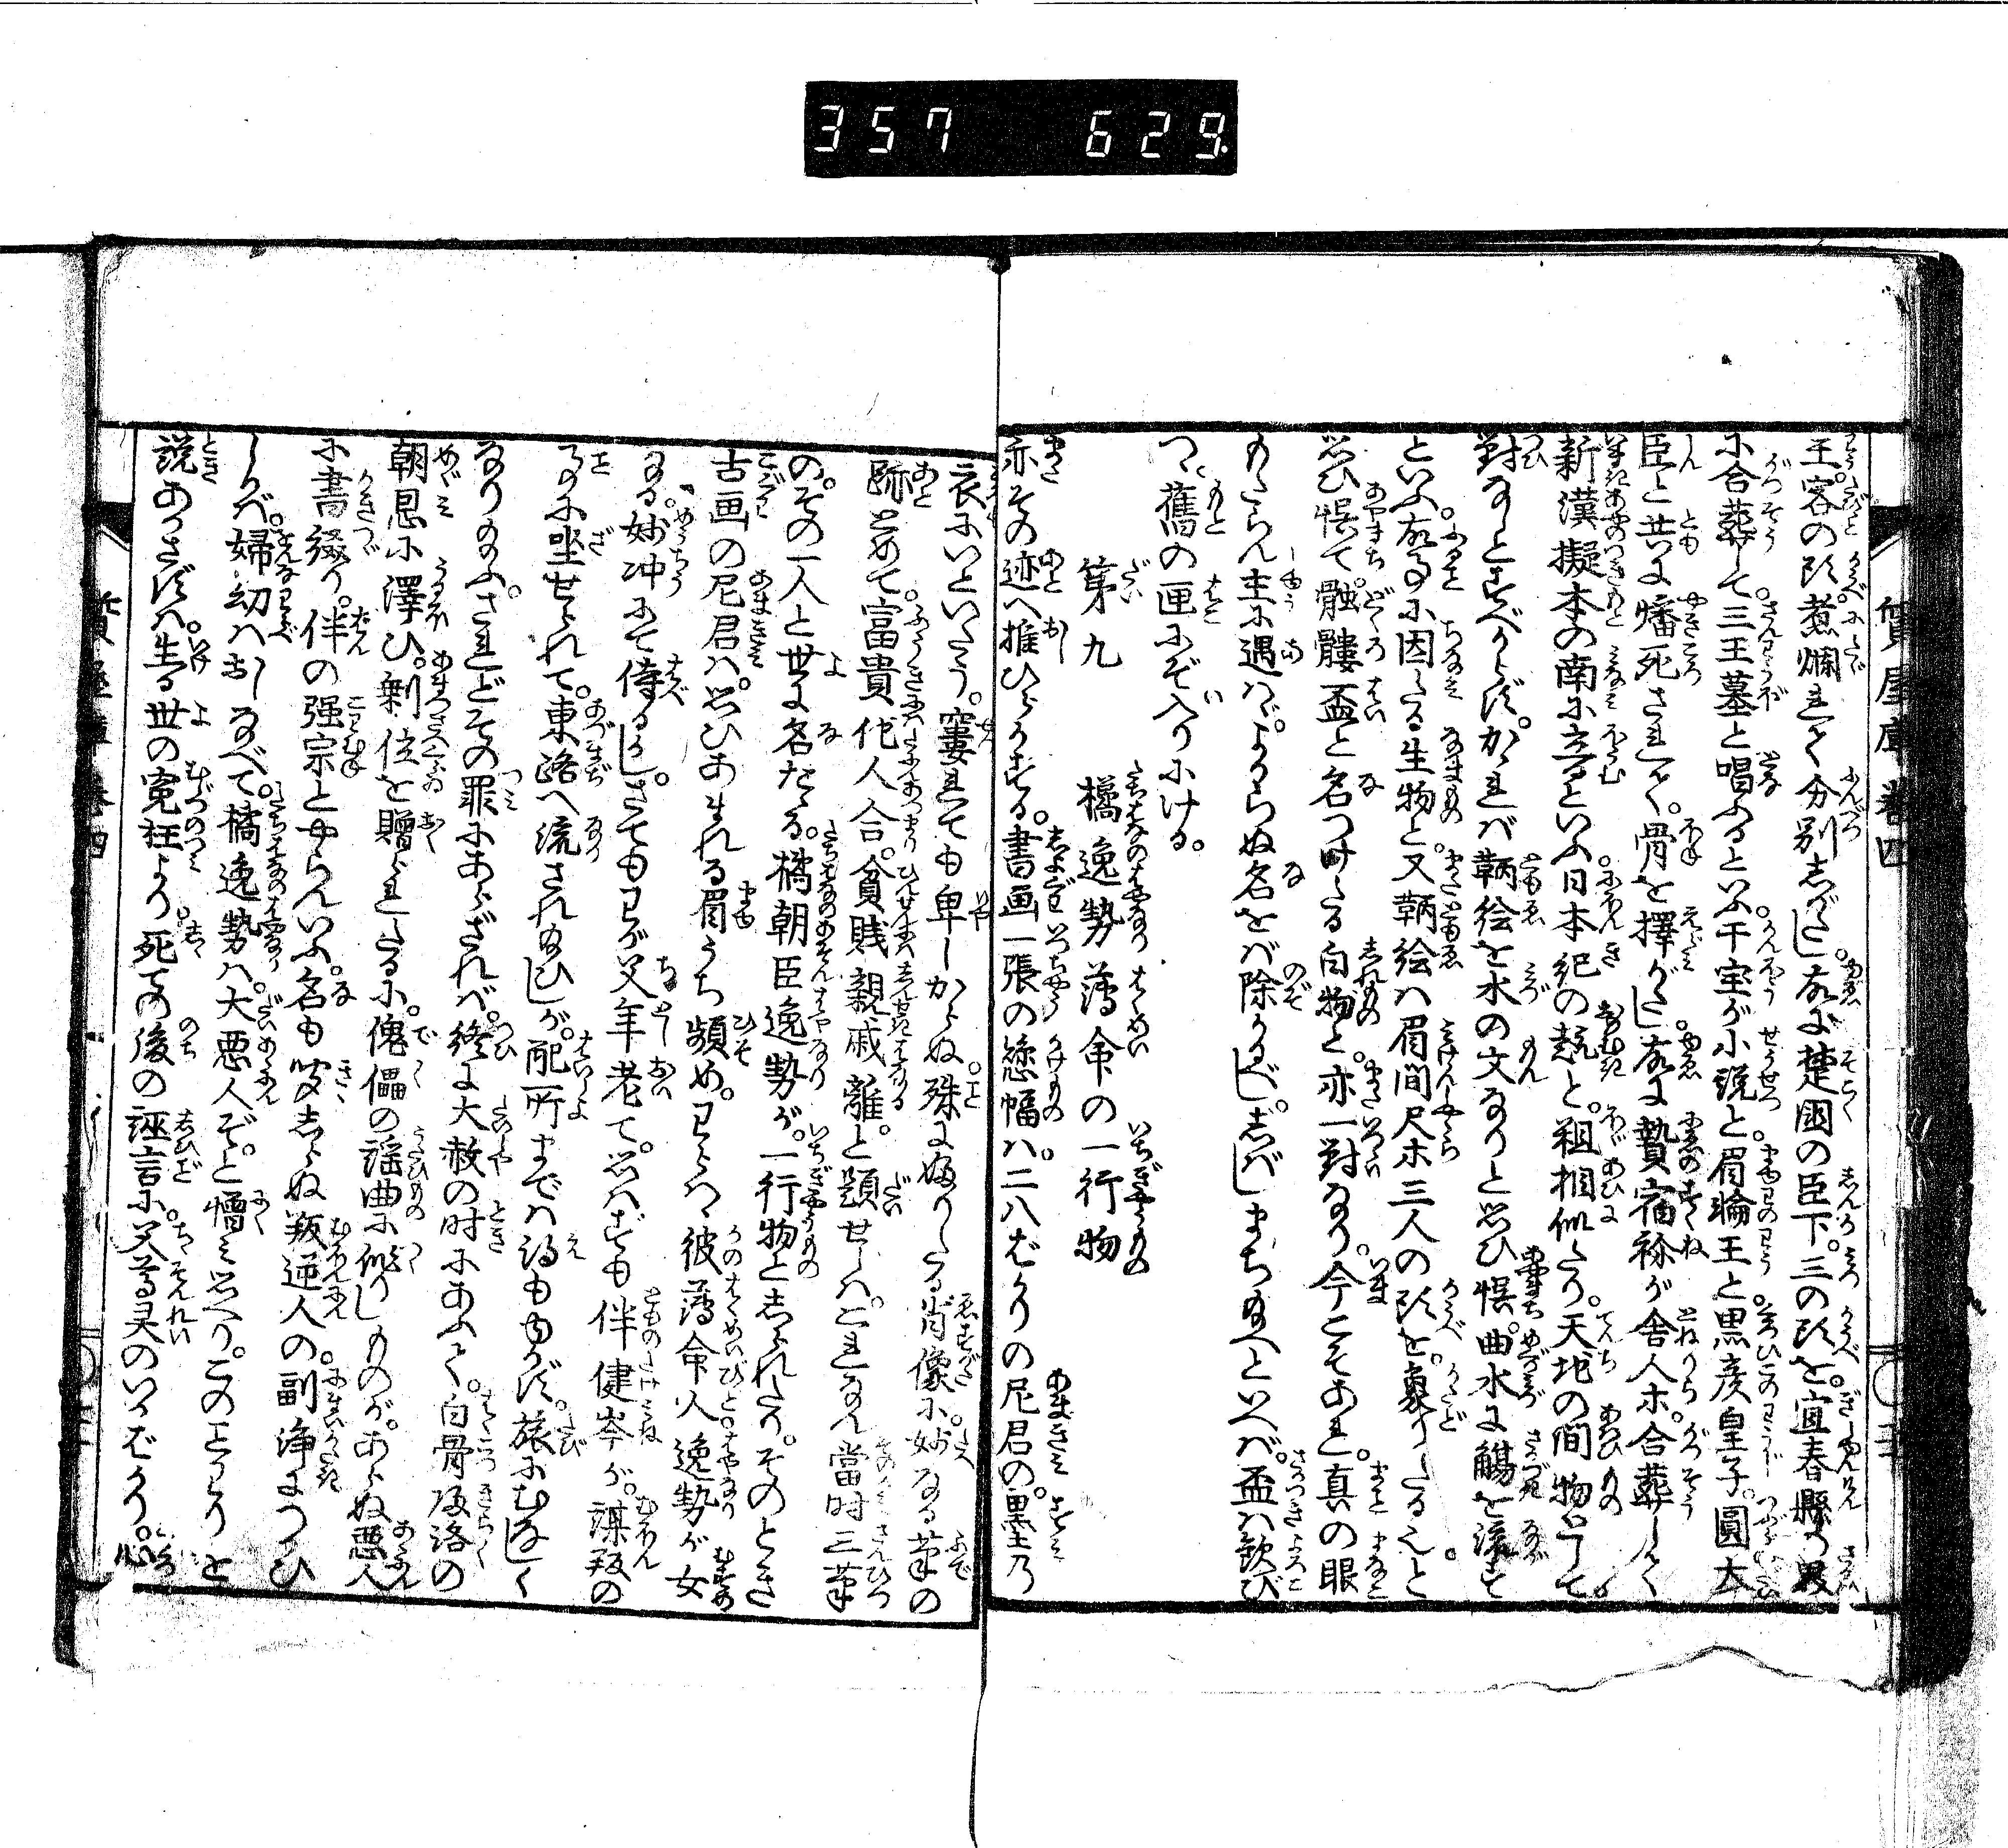 357 629
質屋庫巻四
王。客の頭。煮爛れて分別しがたし。故に楚國の臣下。三の頭を。宜春縣
に合葬して三王墓と唱ふるといふ干宝が小説と。眉輪王と黒彦皇子。圓大
臣と共に燔死されて。骨を擇がたし。故に贄宿祢が舎人ホ。合葬して
新漢擬本の南に立といふ。日本紀の趣と。粗相似たり。天地の間物として。
對なしとすべからず。かゝれバ鞆絵を水の文なりと思ひ悞。曲水に觴を流す
といふ故事に因たる生物と。又鞆絵ハ眉間尺ホ三人の頭を。象りたるを
思ひ悞て髑髏盃と名つけたる白物と。亦一對なり。今こそあれ。真の眼
あらん主に遇ハゞ。よからぬ名をバ除くべし。しばしまち給へといへバ。盃ハ歓び
つゝ舊の匣にぞ入りにける。
第九 橘逸勢薄命の一行物
亦その迹へ推ひらかする。書画一張の懸幅ハ。二八ばかりの尼君の。墨乃
衣にいといたう。窶れても卑しからぬ。殊に婚りたる肖像に。妙なる筆の
跡とめて。富貴佗人合。貧賎親戚離。と題せしハ。これなん當時三筆
の。その一人と世に名だゝる。橘朝臣逸勢が。一行物としられたり。そのとき
古画の尼君ハ。思ひあまれる眉うち顰め。わらハゝ彼薄命人逸勢が女
なる。妙冲にて侍るかし。さてもわが父年老て。思ハずも伴健岑が。謀叛の
事に坐せられて。東路へ流され給ひしが。配所までハ得もゆかず。旅にむなしく
なり給ふ。されどその罪にあらざれバ。終に大赦の时にあふて。白骨帰洛の
朝恩に澤ひ。剰位を贈られたるに。傀儡の謡曲に似りしものが。あらぬ悪人
に書綴り。伴の强宗とやらんいふ。名も聞しらぬ叛逆人の。副浄につかひ
しかバ。婦幼ハおしなべて。橘逸勢ハ。大悪人ぞ。と憎ミ思へり。このことわりを
説あかさずハ。生る世の寃枉より。死ての後の誣言に。父尊灵のいかばかり。心
質屋庫巻四